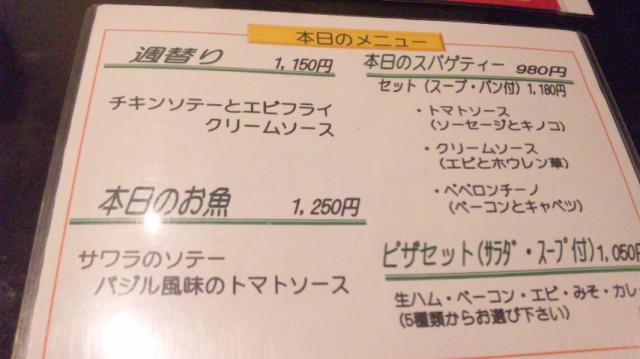 本日のメニュー
週替り 1,150円
チキンソテーとエビフライ
クリームソース
本日のお魚 1,250円
サワラのソテー
バジル風味のトマトソース
本日のスパゲティー 980円
セット（スープ・パン付）1,180円
・トマトソース
（ソーセージとキノコ）
・クリームソース
（エビとホウレン草）
・ペペロンチーノ
（ベーコンとキャベツ）
ピザセット（ｻﾗﾀﾞ・ｽｰﾌﾟ付）1,050円
生ハム・ベーコン・エビ・みそ・カレ
（5種類からお選び下さい）